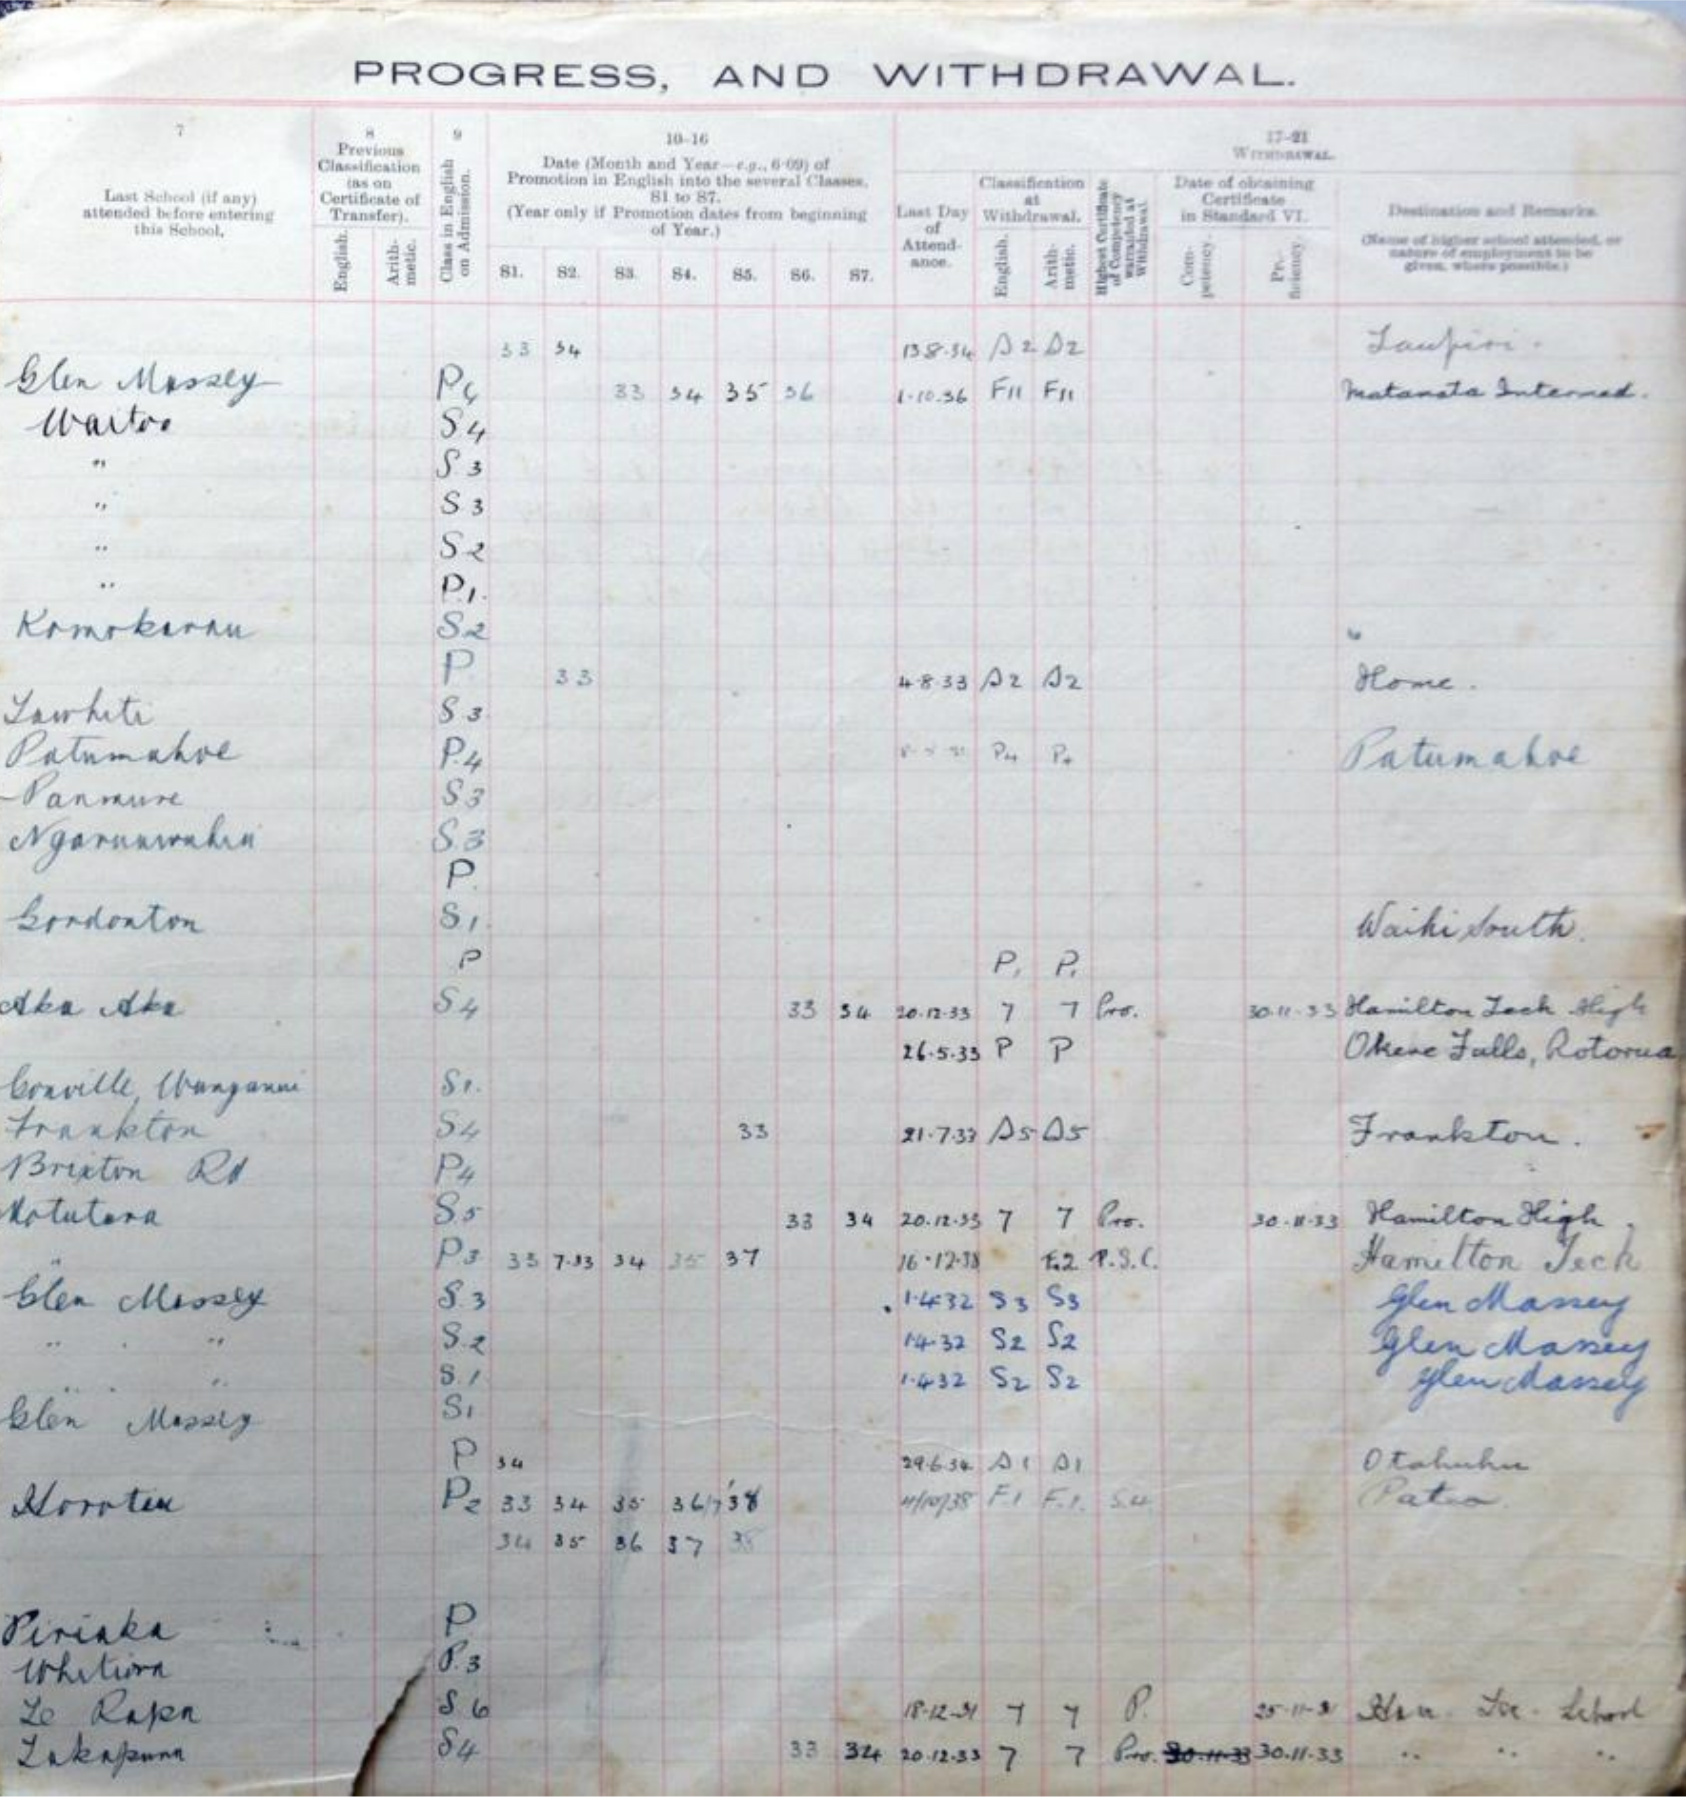 PROGRESS, AND WITHDRAWAL.
7 8 9 10-16 17-21
Last School (if any) attended before entering this School,
Previous Classification (as on Certificate of Transfer).
English. Arith-metic.
Class in English on Admission.
Date (Month and Year—e.g., 6-09) of Promotion in English into the several Classes, S1 to S7.
(Year only if Promotion dates from beginning of Year.)
S1. S2. S3. S4. S5. S6. S7.
WITHDRAWAL.
Last Day of Attend-ance.
Classification at Withdrawal.
English. Arith-metic.
Highest Certificate of Competency warranted at Withdrawal.
Date of obtaining Certificate in Standard VI.
Com-petency. Pro-ficiency.
Destination and Remarks.
(Name of higher school attended, or nature of employment to be given, where possible.)
33 34 13.8.34 S2 S2 Taupiri.
Glen Massey P4 33 34 35 36 1.10.36 F11 F11 Matamata Intermed.
Waitoa S4
" S3
" S3
" S2
" P.1.
Komokorau S2 "
P 33 4.8.33 S2 S2 Home.
Tawhiti S3
Patumahoe P.4 P4 P4 Patumahoe
Panmure S3
Ngaruawahia S.3
P.
Gordonton S1. Waihi South.
P P. P.
Aka Aka S4 33 34 20.12.33 7 7 Pro. 30.11.33 Hamilton Tech High
26.5.33 P P Okere Falls, Rotorua
Gonville, Wanganui S1.
Frankton S4 33 21.7.33 S5 S5 Frankton.
Brixton Rd P4
Motutara S5 33 34 20.12.33 7 7 Pro. 30.11.33 Hamilton High.
" P3 33 7.33 34 35 37 16.12.38 F.2 P.S.C. Hamilton Tech
Glen Massey S.3 1.4.32 S3 S3 Glen Massey
" " S.2 1.4.32 S2 S2 Glen Massey
" " S.1 1.4.32 S2 S2 Glen Massey
Glen Massey S1
P 34 29.6.34 S1 S1 Otahuhu
Horotiu P2 33 34 35 36/7 38 11/10/38 F.1 F.1. S4 Patea.
34 35 36 37 38
Piriaka P
Whitiora P.3
Te Rapa S6 18.12.31 7 7 P. 25.11.31 Ham. Tec. School
Takapuna S4 33 34 20.12.33 7 7 Pro. 30.11.33 30.11.33 " " "